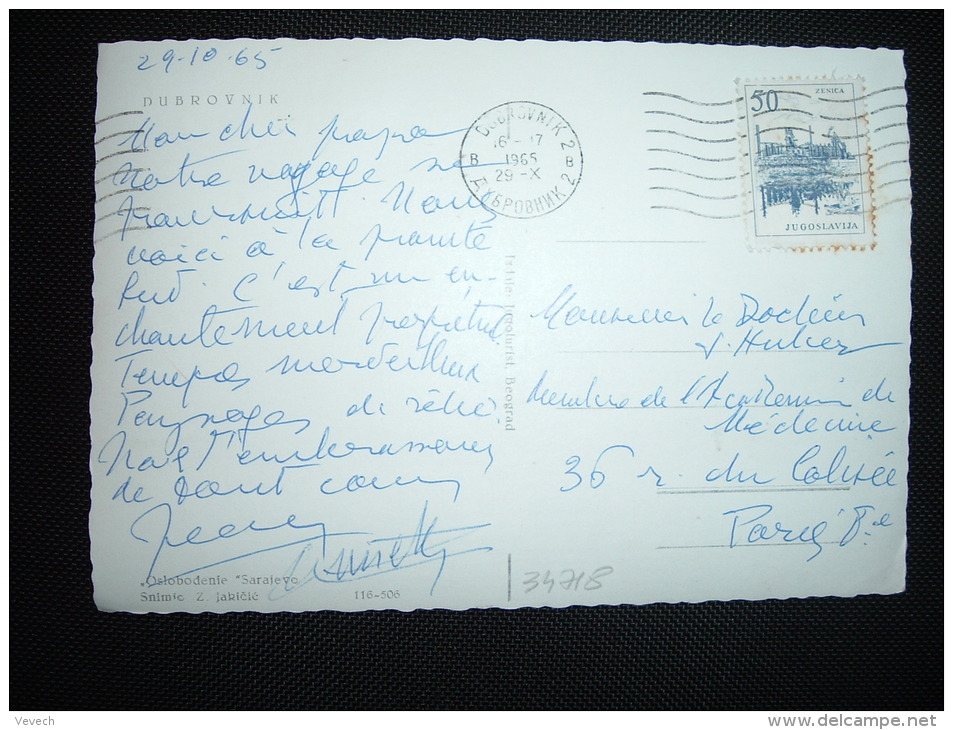 29-10-65
DUBROVNIK
Mon cher papa
Notre voyage se
poursuit. Nous
voici à la pointe
Sud. C'est un en-
chantement perpétuel
Temps merveilleux
Paysages de rêve
Nous t'embrassons
de tout coeur
"Oslobođenje" Sarajevo
Snimio Z. Jakičić 116-506
DUBROVNIK 2
16-17
B 1965 B
29-X
ДУБРОВНИК 2
50 ZENICA
JUGOSLAVIJA
Jugoturist, Beograd
Monsieur le Docteur
J. Huber
Membre de l'Académie de
Médecine
36 r. du Colisée
Paris 8e
34718
Vevech
www.delcampe.net